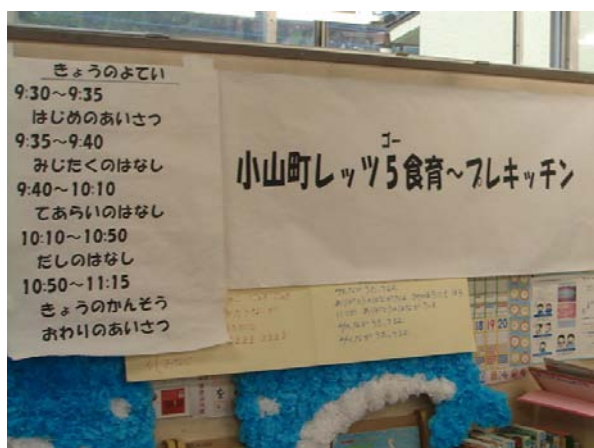 きょうのよてい
9:30～9:35
はじめのあいさつ
9:35～9:40
みじたくのはなし
9:40～10:10
てあらいのはなし
10:10～10:50
だしのはなし
10:50～11:15
きょうのかんそう
おわりのあいさつ
ゴー
小山町レッツ5食育～プレキッチン
18 19 20